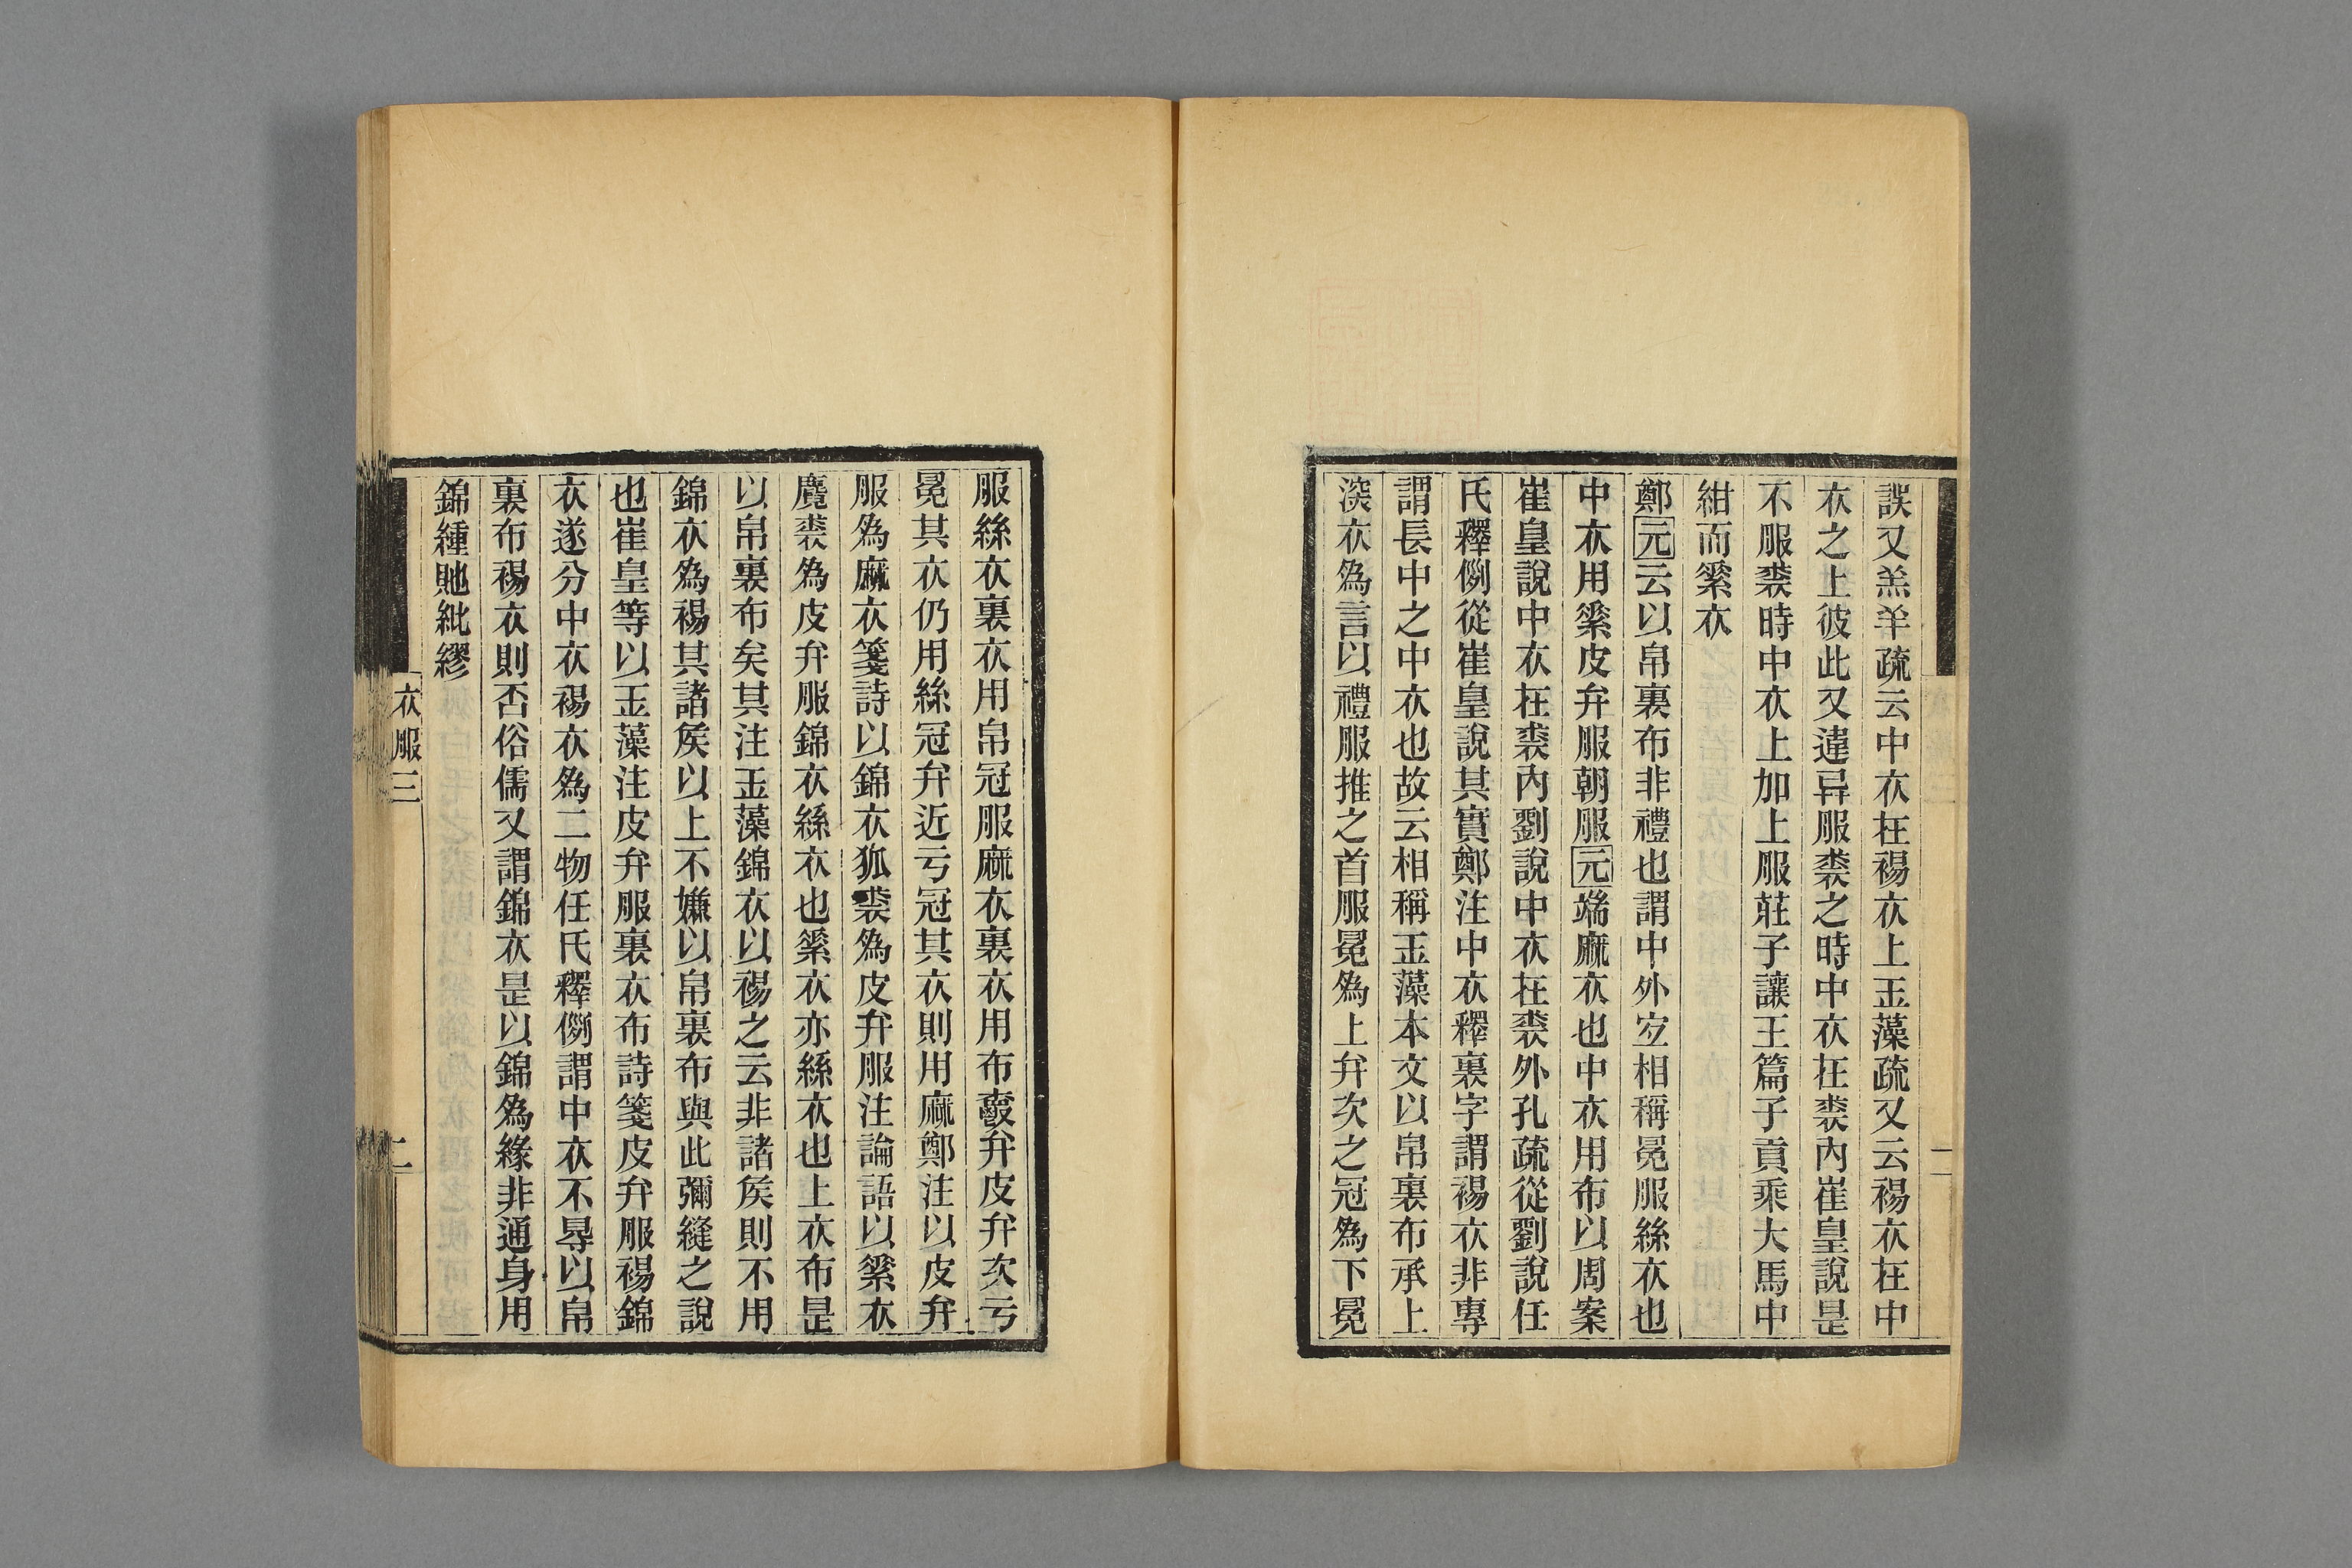 誤又羔羊疏云中衣在裼衣上玉藻疏又云裼衣在中
衣之上彼此又違异服裘之時中衣在裘內崔皇說是
不服裘時中衣上加上服莊子讓王篇子貢乘大馬中
紺而素衣
鄭元云以帛裏布非禮也謂中外宜相稱冕服絲衣也
中衣用素皮弁服朝服元端麻衣也中衣用布以周案
崔皇說中衣在裘內劉說中衣在裘外孔疏從劉說任
氏釋例從崔皇說其實鄭注中衣釋裏字謂裼衣非專
謂長中之中衣也故云相稱玉藻本文以帛裏布承上
深衣為言以禮服推之首服冕為上弁次之冠為下冕
服絲衣裏衣用帛冠服麻衣裏衣用布爵弁皮弁次亏
冕其衣仍用絲冠弁近亏冠其衣則用麻鄭注以皮弁
服為麻衣箋詩以錦衣狐裘為皮弁服注論語以素衣
麑裘為皮弁服錦衣絲衣也素衣亦絲衣也上衣布是
以帛裏布矣其注玉藻錦衣以裼之云非諸侯則不用
錦衣為裼其諸侯以上不嫌以帛裏布與此彌縫之說
也崔皇等以玉藻注皮弁服裏衣布詩箋皮弁服裼錦
衣遂分中衣裼衣為二物任氏釋例謂中衣不得以帛
裏布裼衣則否俗儒又謂錦衣是以錦為緣非通身用
錦緟貤紕繆
衣服三
二